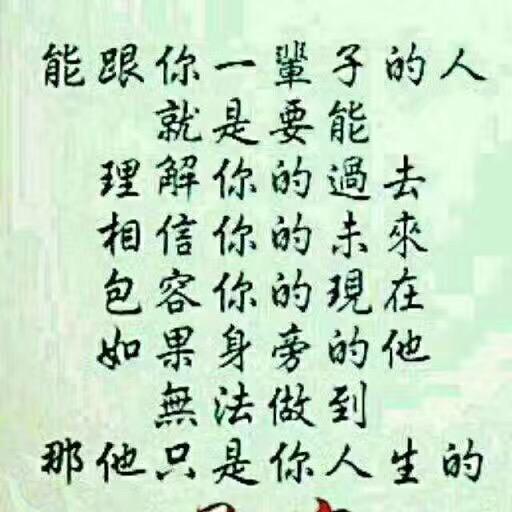 能跟你一輩子的人
就是要能
理解你的過去
相信你的未來
包容你的現在
如果身旁的他
無法做到
那他只是你人生的